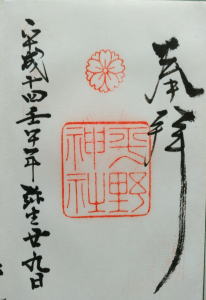 奉拝
平野
神社
平成十四壬午年弥生廿九日